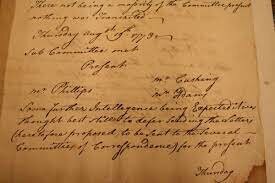 There not being a majority of the Committee present
nothing was Transacted.
Thursday Augt 19th 1773.
Sub Committee met
Present
Mr Phillips Mr Cushing
Mr Adams
Some further Intelligence being Expected it was
thought best still to defer sending the Letter
(heretofore proposed to be sent to the several
Committees of Correspondence) for the present
Thursday